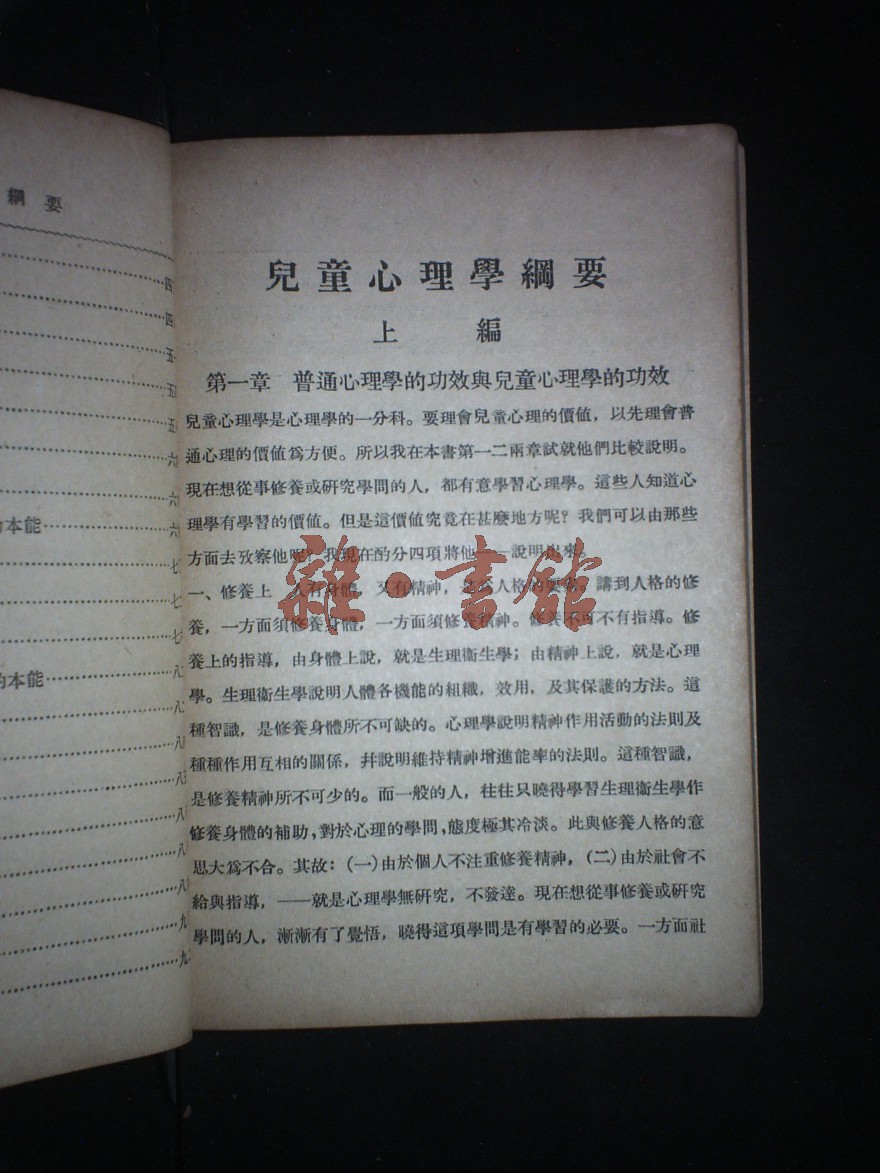 綱要
四
四
五
五
五
六
六
本能 六
七
七
七
的本能 八
八
八
八
八
八
八
九
九
兒童心理學綱要
上編
第一章 普通心理學的功效與兒童心理學的功效
兒童心理學是心理學的一分科。要理會兒童心理的價値，以先理會普
通心理的價値爲方便。所以我在本書第一二兩章試就他們比較說明。
現在想從事修養或硏究學問的人，都有意學習心理學。這些人知道心
理學有學習的價値。但是這價値究竟在甚麽地方呢？我們可以由那些
方面去攷察他呢？我現在酌分四項將他一一說明出來。
一、修養上 人有身體，又有精神，是爲人格的要素。講到人格的修
養，一方面須修養身體，一方面須修養精神。修養不可不有指導。修
養上的指導，由身體上說，就是生理衞生學；由精神上說，就是心理
學。生理衞生學說明人體各機能的組織，效用，及其保護的方法。這
種智識，是修養身體所不可缺的。心理學說明精神作用活動的法則及
種種作用互相的關係，幷說明維持精神增進能率的法則。這種智識，
是修養精神所不可少的。而一般的人，往往只曉得學習生理衞生學作
修養身體的補助，對於心理的學問，態度極其冷淡。此與修養人格的意
思大爲不合。其故：（一）由於個人不注重修養精神，（二）由於社會不
給與指導，——就是心理學無硏究，不發達。現在想從事修養或硏究
學問的人，漸漸有了覺悟，曉得這項學問是有學習的必要。一方面社
雜·書館